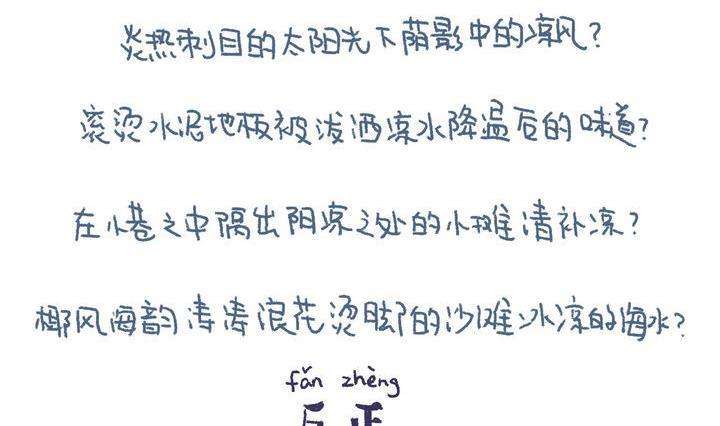 炎热刺目的太阳光下荫影中的凉风?
滚烫水泥地板被泼洒凉水降温后的味道?
在小巷之中隔出阴凉之处的小摊清补凉?
椰风海韵涛涛浪花烫脚的沙滩冰凉的海水?
fǎn zhèng
反正